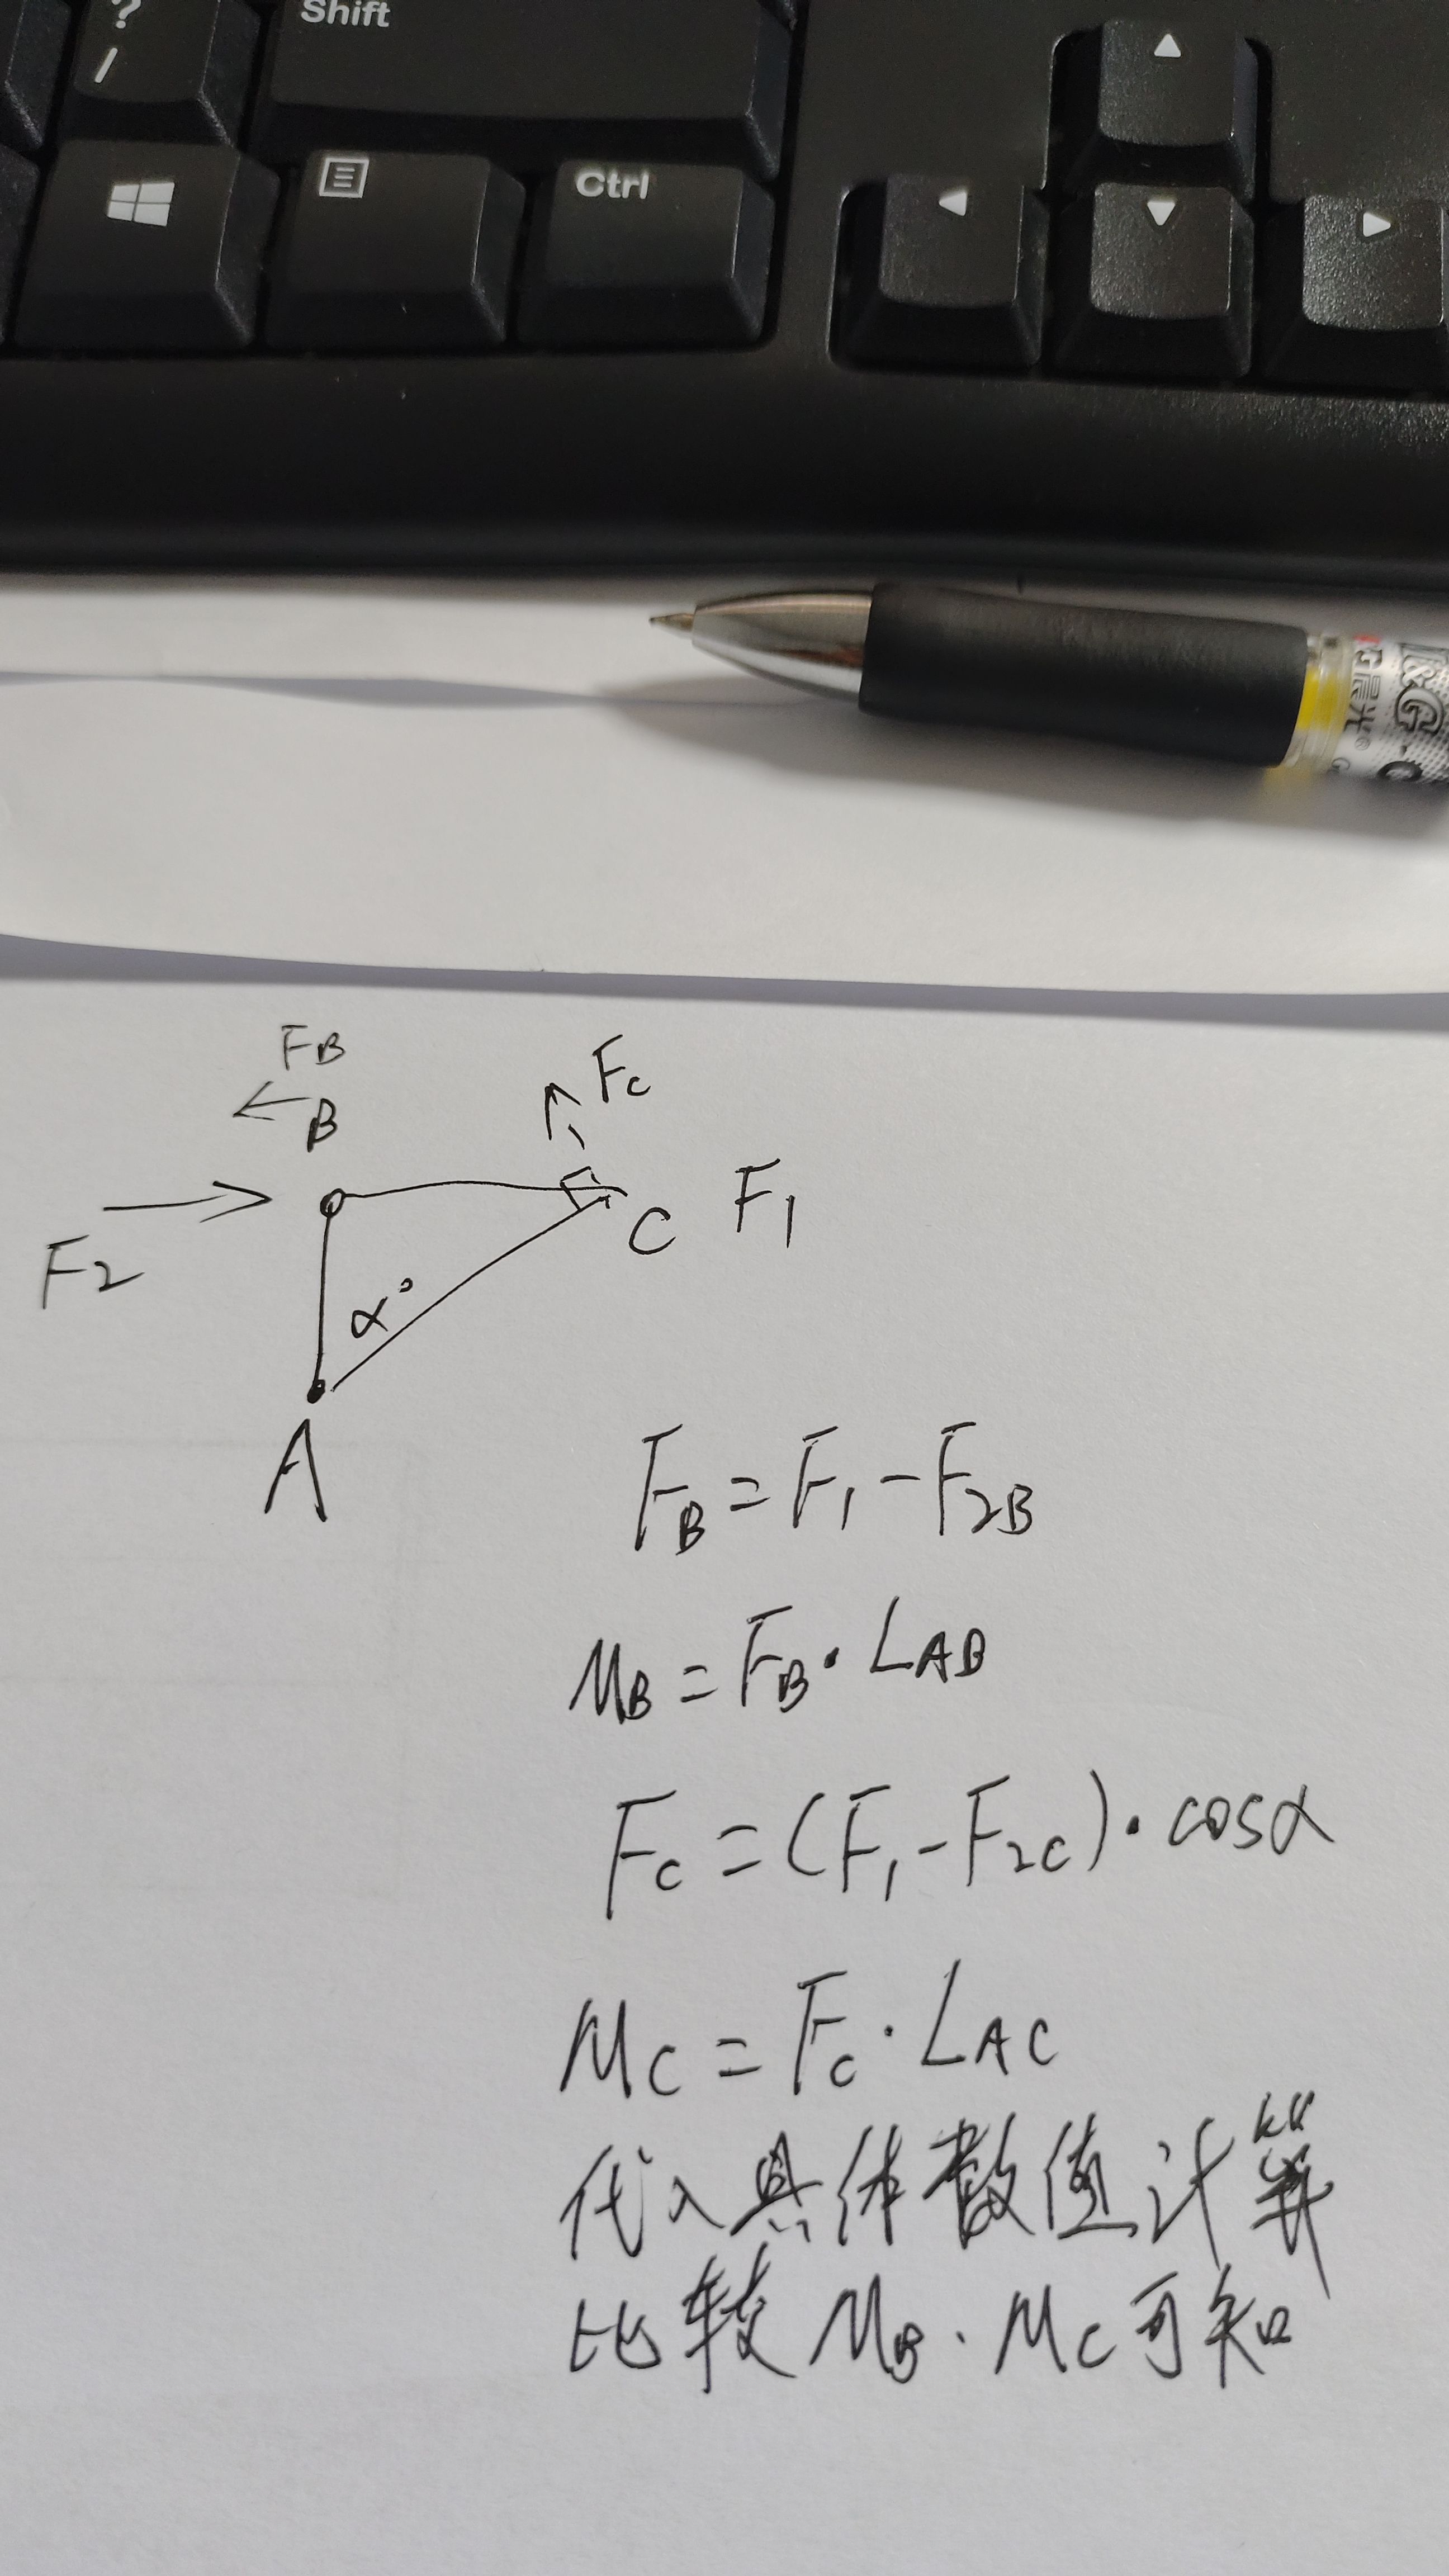 ?
/
Shift
Ctrl
M&G晨光®
FB
B
Fc
F1
C
F2
α°
A
FB=F1-F2B
MB=FB·LAB
FC=(F1-F2C)·cosα
MC=FC·LAC
代入具体数值计算
比较MB.MC可知